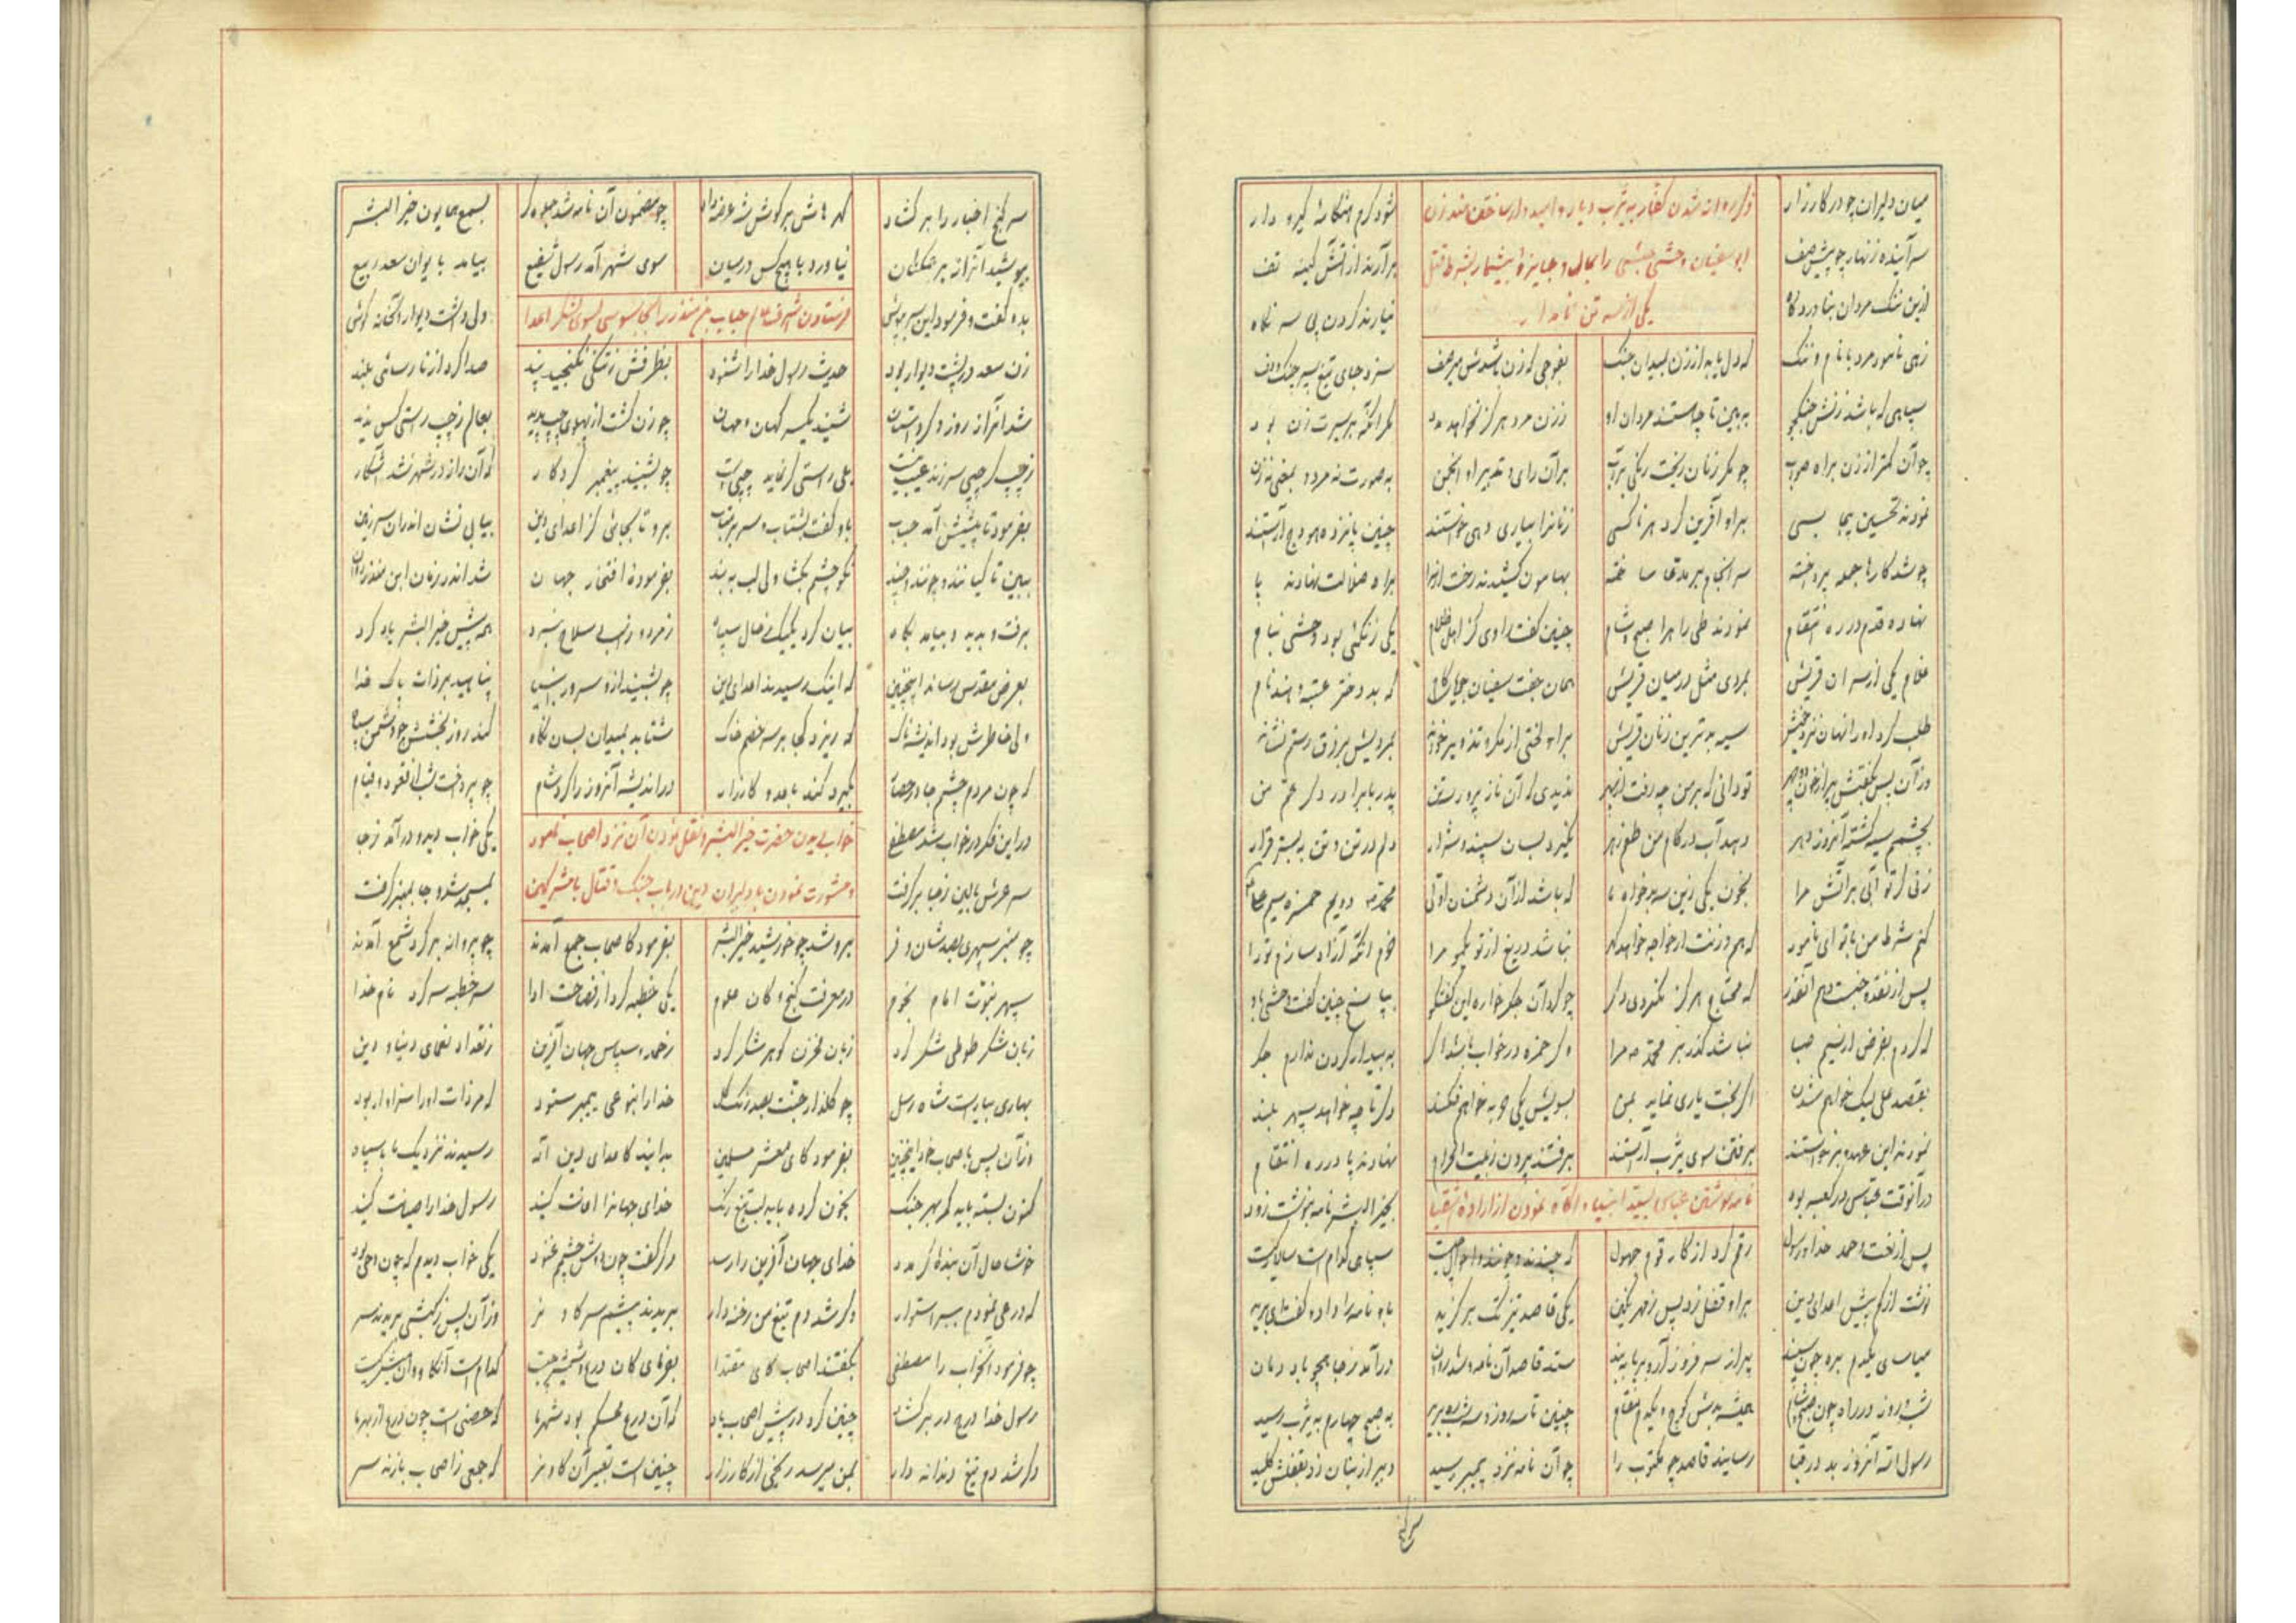 میان دلیران چو در کارزار شود گرم هنگامهٔ گیر و دار
ذکر روانه شدن کفار به یثرب دیار و امیدوار ساختن هند زن
سرآینده زنهار چو پیش صف برآرند از آتش کینه تف
ابوسفیان وحشی حبشی را بمال و جایزهٔ بیشمار بشرط قتل
ازین ننگ مردان بناوردگاه نیارند کردن پی سر نگاه
یکی از سه تن نامدار
زهی نامور مرد با نام و ننگ که دل یابد از زن بمیدان جنگ بفوجی که زن باشدش میر صف سزد جای تیغ سپر چنگ و دف
سپاهی که باشد زنش جنگجو به بین تا چه استند مردان او ززن مرد هرگز نخواهد مدد مگر آنکه بر سیرت زن بود
چو آن کمتر از زن براه صواب چو مکر زنان ریخت رنگی بر آب بر آن رای و تدبیر او انجمن به صورت نه مرد و بمعنی نه زن
نمودند تحسین بیجا بسی بر او آفرین کرد هر ناکسی زنانرا بیاری همی خواستند چنین پانزده هودج آراستند
چو شد کارها جمله پرداخته سرانجام هر مدعا ساخته بهامون کشیدند رخت از سرا براه ضلالت نهادند پا
نهاده قدم در ره انتقام نمودند طی راه را صبح و شام چنین گفت راوی کز اهل ظلام یکی زنگئی بود وحشی بنام
غلام یکی از سران قریش بمردی مثل در میان قریش همان جفت سفیان که بد دختر عتبه و هند نام
طلب کرد او را نهان نزد خویش سیه بدترین زنان قریش بر او لختی از مکر و تذویر خواند
وز آن پس بگفتش تو دانی که بر من چه رفت از سپهر ندیدی که آن ناز پرور پدر با برادر دگر عم من
بچشمم سیه گشته آنروز مهر دهد آب در کام من طعم زهر نگیرد بسان سپند و شرار دلم در تن و تن به بستر قرار
زنی گر تو آبی بر آتش مرا بخون یکی زین سه بدخواه ما که باشد از آن دشمنان اولی محمد دویم حمزه سیم علی
کنم شرط من با تو ای نامور که هم وزنت از خواجه خواهد نباشد دریغ از تو نیکو مرا خرم آنگه آزاد سازم تو را
پس از نقد و جنست دهم آنقدر که محتاج هرگز نگردی دگر چو کرد آن جگر خواره این گفتگو بپاسخ چنین گفت وحشی باو
که گردم بفرض ار نسیم صبا نباشد گذر بر محمد مرا وگر حمزه در خواب باشد اگر به بیدار کردن ندارم جگر
بقصد علی لیک خواهم شدن اگر بخت یاری نماید بمن بسویش یکی حربه خواهم فکند دگر تا چه خواهد سپهر بلند
نمودند این عهد و برخواستند برفتن سوی یثرب آراستند برفتند بیرون ز بیت الحرام نهادند پا در ره انتقام
در آنوقت عباس در کعبه بود بخیر البشر نامه بنوشت زود
نامه نوشتن عباس بسید انبیا و آگاه نمودن از ارادهٔ اشقیا
پس از نعت و حمد خدا و رسول رقم کرد از کار قوم جهول که چندند و چونند و احوال چیست سپاهی کدام است و سالار کیست
نوشت از کم و بیش اعدای دین بر او قفل زد پس ز مهر نگین یکی قاصد تیزتک برگزید باو نامه را داد و گفت ای برید
میاسای یکدم بره چون سپند ستد قاصد آن نامه و شد روان درآمد ز جا همچو باد دمان
شب و روز در راه چون صبح و شام همیشه بدش کوچ و یکدم مقام چنین تا سه روز و سه شب ره برید به صبح چهارم به یثرب رسید
رسول الله آنروز بد در قبا رسانید قاصد چو مکتوب را چو آن نامه نزد پیمبر رسید دبیر از بنان زد بقفلش کلید
سر گنج
سر گنج اخبار را بر گشاد گهرهاش بر گوش شه عرضه داد چو مضمون آن نامه شد جلوه گر بسمع همایون خیر البشر
بپوشید آنراز بر همگنان نیاورد با هیچ کس در میان سوی شهر آمد رسول شفیع بیامد بایوان سعد ربیع
بدو گفت و فرمود این سر بپوش ولی داشت دیوار آنخانه گوش
فرستادن اشرف عالم حباب بن منذر را بجاسوسی بسوی لشکر اعدا
زن سعد در پشت دیوار بود حدیث رسول خدا را شنود بظرفش ز تنگی نگنجید پند صدا کرد از نارسائی بلند
شد آنراز روز دگر داستان شنیدند یکسر کهان و مهان چو زن گشت از پهلوی چپ پدید بعالم ز چپ راستی کس ندید
ز چپ گر چپی سر زند عیب نیست ولی راستی گر نماید چپی است چو بشنید پیغمبر کردگار که آن راز در شهر شد آشکار
بفرمود تا پیشش آمد حباب باو گفت بشتاب و سر بر متاب برو تا بجائی کز اعدای دین بیابی نشان اندران سرزمین
ببین تا کیانند و چونند و چند نکو چشم بگشا ولی لب به بند بفرمودهٔ افتخار جهان شد اندر زمان ابن منذر روان
برفت و بدید و بیامد بگاه بیان کرد یکیک ز حال سپاه ز مرد و ز اسب و سلاح نبرد همه پیش خیر البشر یاد کرد
بعرض مقدس رساند اینچنین که اینک رسیدند اعدای دین چو بشنید از او سرور انبیا پناهید بر ذات پاک خدا
ولی خاطرش بود اندیشه ناک که ریزد کجا بر سر خصم خاک شتابد بمیدان بسان نگاه کند روز بخشش چو دشمن سیاه
که چون مردم چشم جا در حصار بگیرد کند با عدو کارزار در اندیشه آنروز را کرد شام چو پرداخت شب از قعود و قیام
در این فکر در خواب شد مصطفی یکی خواب دید و در آمد ز جا
خواب دیدن حضرت خیر البشر و نقل نمودن آن نزد اصحاب نمود
سر عرش بالین ز جا بر گرفت بمسجد شد و جا بمنبر گرفت
و مشورت نمودن با دلیران دین در باب جنگ و قتال با مشرکین
چو منبر سپهری بصد شان و فر برو شد چو خورشید خیر البشر بفرمود کاصحاب جمع آمدند چو پروانه بر گرد شمع آمدند
سپهر نبوت امام نجوم در معرفت گنج و کان علوم یکی خطبه کرد از فصاحت ادا سر خطبه سر کرد نام خدا
زبان شکر طوطی شکر کرد زبان مخزن گوهر شکر کرد ز حمد و سپاس جهان آفرین ز تعداد نعمای دنیا و دین
بهاری بیاراست شاه رسل چو گلزار جنت بصد رنگ گل خدا را بنوعی پیمبر ستود که مر ذات او را سزاوار بود
وز آن پس باصحاب خود اینچنین بفرمود کای معشر مسلمین بدانید کاعدای دین اله رسیدند نزدیک ما با سپاه
کنون بسته باید کمر بهر جنگ بخون کرده باید لب تیغ رنگ خدای جهانرا اعانت کنید رسول خدا را صیانت کنید
خوشا حال آن بندهٔ کز مدد خدای جهان آفرین را رسد دگر گفت چون دوش چشمم غنود یکی خواب دیدم که چون وحی بود
که درعی نمودم ببر استوار وگر شد دم تیغ من رخنه دار بریدند پیشم سر گاو نر وز آن پس ز کبشی بریدند سر
چو فرمود آنخواب را مصطفی بگفتند اصحاب کای مقتدا بفرمای کان درع و شمشیر چیست کدام است آنگاو و آن کبش کیست
رسول خدا درج در بر گشاد چنین کرد در پیش اصحاب یاد که آن درع محکم بود شهر ما که حصنی است چون درع از بهر ما
دگر شد دم تیغ دندانه دار بمن میرسد رنجی از کارزار چنین است تعبیر آن گاو نر که جمعی ز اصحاب بازند سر